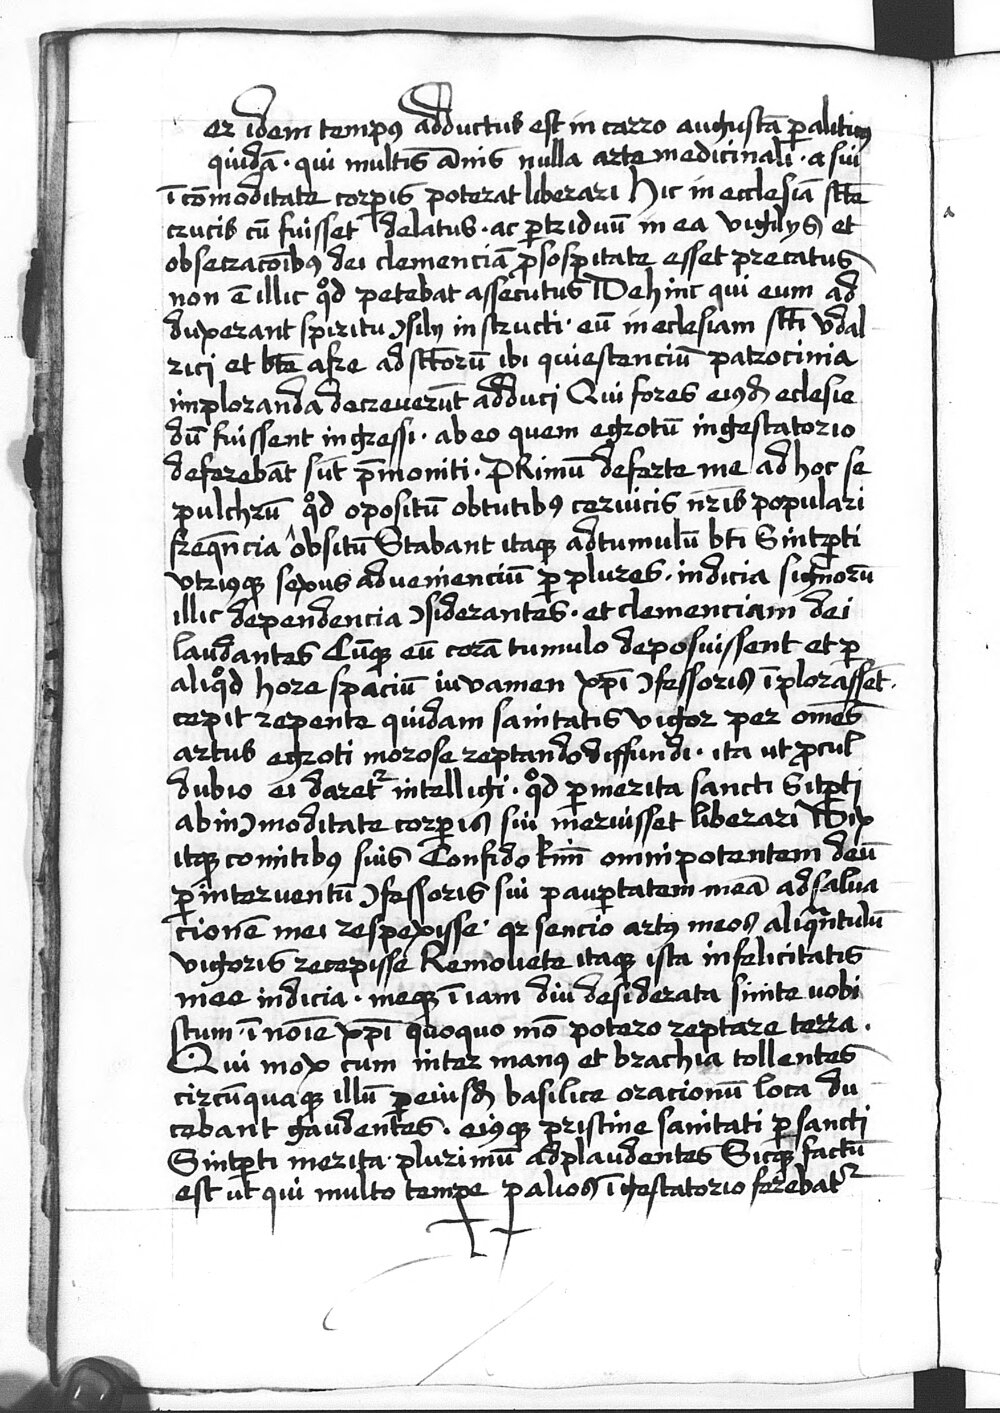 er idem tempꝰ adductus est in carro augustā ꝑaliticꝰ
quidā · qui multis ānis nulla arte medicinali · a sui
ī cōmoditate corꝑis poterat liberari Hic in ecclesiā scē
crucis cū fuisset delatus · ac ꝑ triduū in ea vigilijs et
obsecracōibꝰ dei clemenciā ꝓ sosꝑitate esset precatus
non ē illic qd̊ petebat assecutus Dehinc qui eum ad
duxerant spiritu ꝯsilij instructi · eū in eclesiam scti vdal
rici et btē afre ad sctorū ibi quiescenciū patrocinia
imploranda decreuerūt adduci Qui fores eiꝰd eclesie
dū fuissent ingressi · ab eo quem egrotū in gestatorio
deferebāt sūt p̄moniti · PRimū deferte me ad hoc se
pulchrū qd̊ opositū obtutibꝰ ceruicis nr̄is populari
freq̄ncia obsitū Stabant itaqꝫ ad tumulū bti Sintꝑti
vtriꝰqꝫ sexus adueniencium ꝑ plures · indicia signorū
illic dependencia ꝯsiderantes · et clemenciam dei
laudantes Cūqꝫ eū corā tumulo deposuissent et ꝑ
aliqd̊ hore spaciū iuvamen xp̄i ꝯfessoris īplorassēt ·
cepit repente quidam sanitatis vigor per om̄es
artus egroti morose reptando diffundi · ita ut ꝓcul
dubio ei daretr intelligi · qd̊ ꝑ merita sancti Sitꝑti
ab inꝯmoditate corꝑis sui meruisset liberari Dix
itqꝫ comitibꝰ suis Confido kmī omnipotentem deū
ꝑ interventū ꝯfessoris sui pauꝑtatem meā ad salua
cionē mei respexisse · qr sencio artꝰ meos aliqn̄tulū
vigoris recepisse Remouete itaqꝫ ista infelicitatis
mee indicia · meqꝫ ī iam diu desiderata sinite uobi
scum · ī noīe xp̄i quoquo mō potero reptare terra .
Qui mox eum inter manꝰ et brachia tollentes
circūquaqꝫ illū ꝑ eiusd basilice oracionū loca du
cebant gaudentes · eiꝰqꝫ pristine sanitati ꝑ sancti
Sintꝑti merita · plurimū adplaudentes Sicqꝫ factū
est ut qui multo tempe ꝑ alios ī gestatorio ferebatr